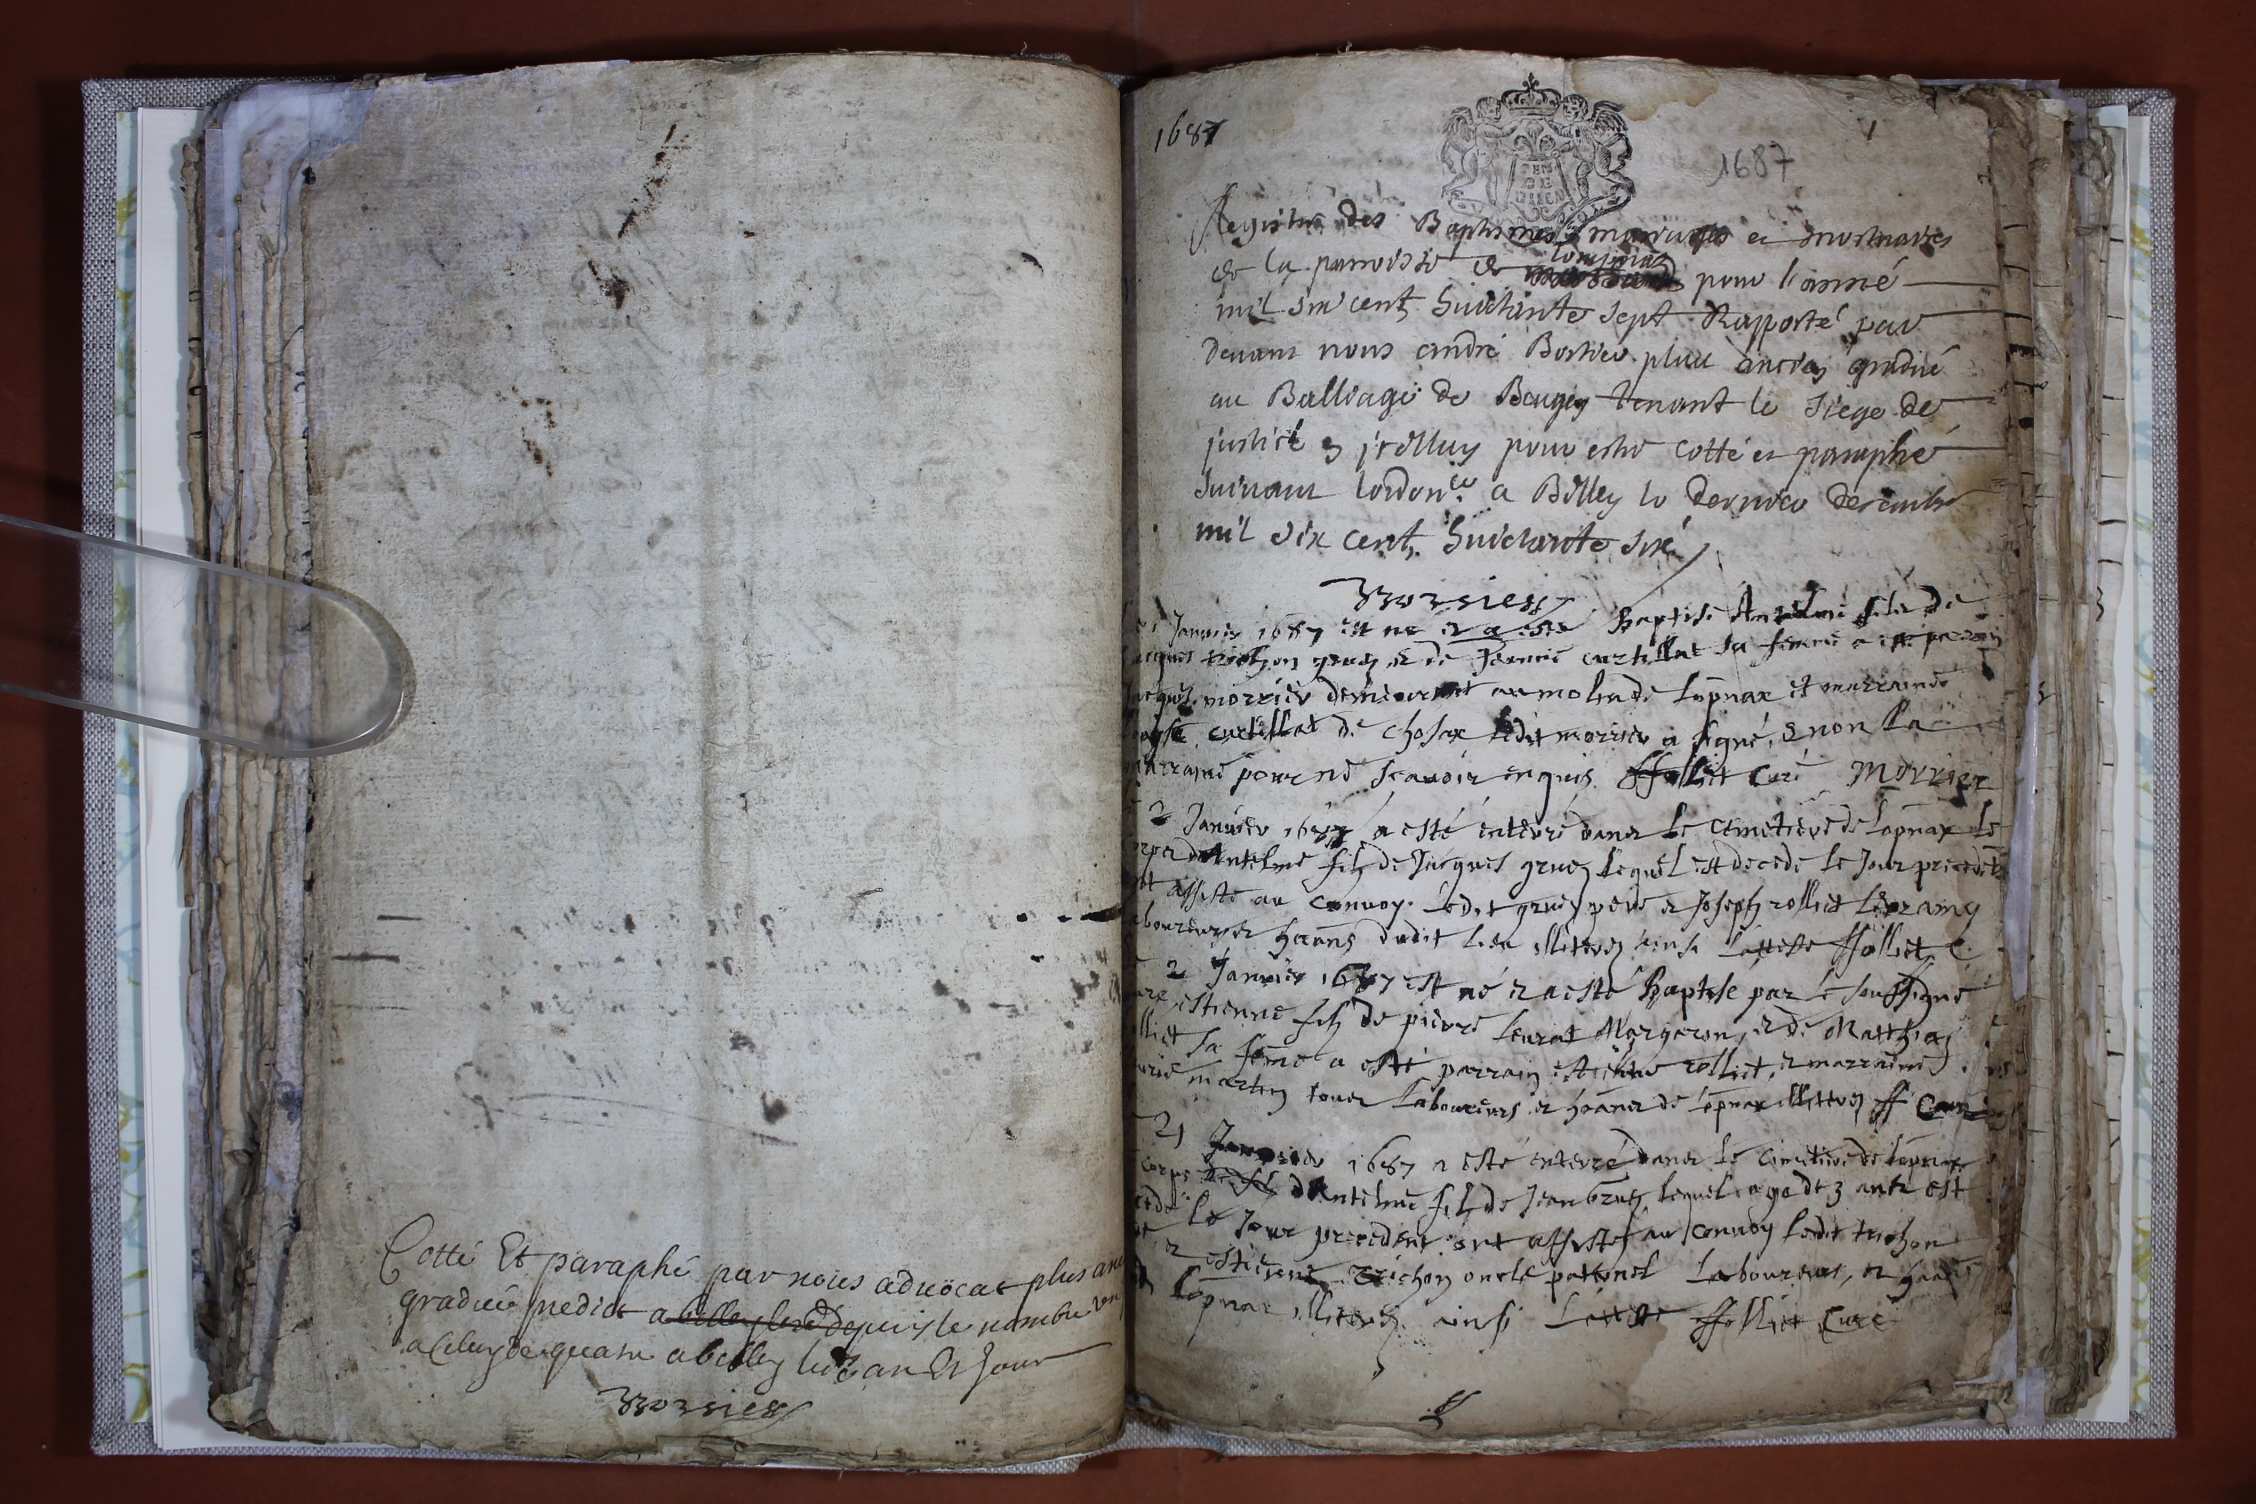 Cotté Et paraphé par nous advocat plus anc
gradué susdict a belley depuis le nombre un
a Celuy de quatre a belley led an Et Jour
Borsies
1687
1
1687
Registre des Baptesmes mariages et mortuaires
de la parroisse de Lompnaz pour l'anné
mil six cent huictante sept Rapporté par
devant nous andré Borsies plus ancien gradué
au Balliage de Beugey tenant le siege de
justice en jcelluy pour estre cotté et paraphé
suivant lordon.ce a Belley le dernier decembre
mil six cent huictante six
Borsies
1 Janvier 1687 est ne et a este Baptisé Antelme fils de
acques trichon gruez et de Jeanne curtillat sa femme a este parrain
acques morrier demeurant au molin de Lopnax et marraine
curtillat de chosax ledit morrier a signé, et non La
marraine pour ne scavoir enquis ffolliet Curé Morrier
2 Janvier 1687 a esté enterré dans le cimetiere de Lopnax le
orps d'Antelme filz de Jacques gruez lequel est decedé le Jour precedent
nt assisté au convoy ledit gruez pere et Joseph rolliet
boureurs et hans dudit lieu illiterez ainsi L'atteste ffolliet c.
2 Janvier 1687 est né et a esté Baptisé par le soussigné
curé estienne filz de pierre Leurat Margeron, et de Matthia
lliet sa feme a esté parrain estienne rolliet, et marraine
martin tous Laboureurs et hans de Lopnax illiterez ff Curé
21 Janvier 1687 a esté enterré dans le cimetiere de Lopnax
corps d'Antelme filz de Jean Gruez lequel age de 3 ants est
cedé le Jour precedent ont assisté au convoy ledit trichon
et estienne trichon oncle paternel Laboureurs, et hans
Lopnax illiterez ainsi L'atteste ffolliet Curé